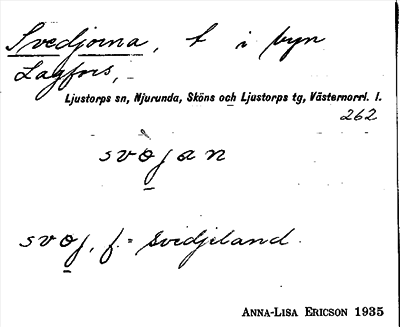 Svedjorna, t i byn
Lagfors, -
Ljustorps sn, Njurunda, Sköns och Ljustorps tg, Västernorrl. l.
262
svo̱jan
svo̱j, f = svedjeland.
ANNA-LISA ERICSON 1935